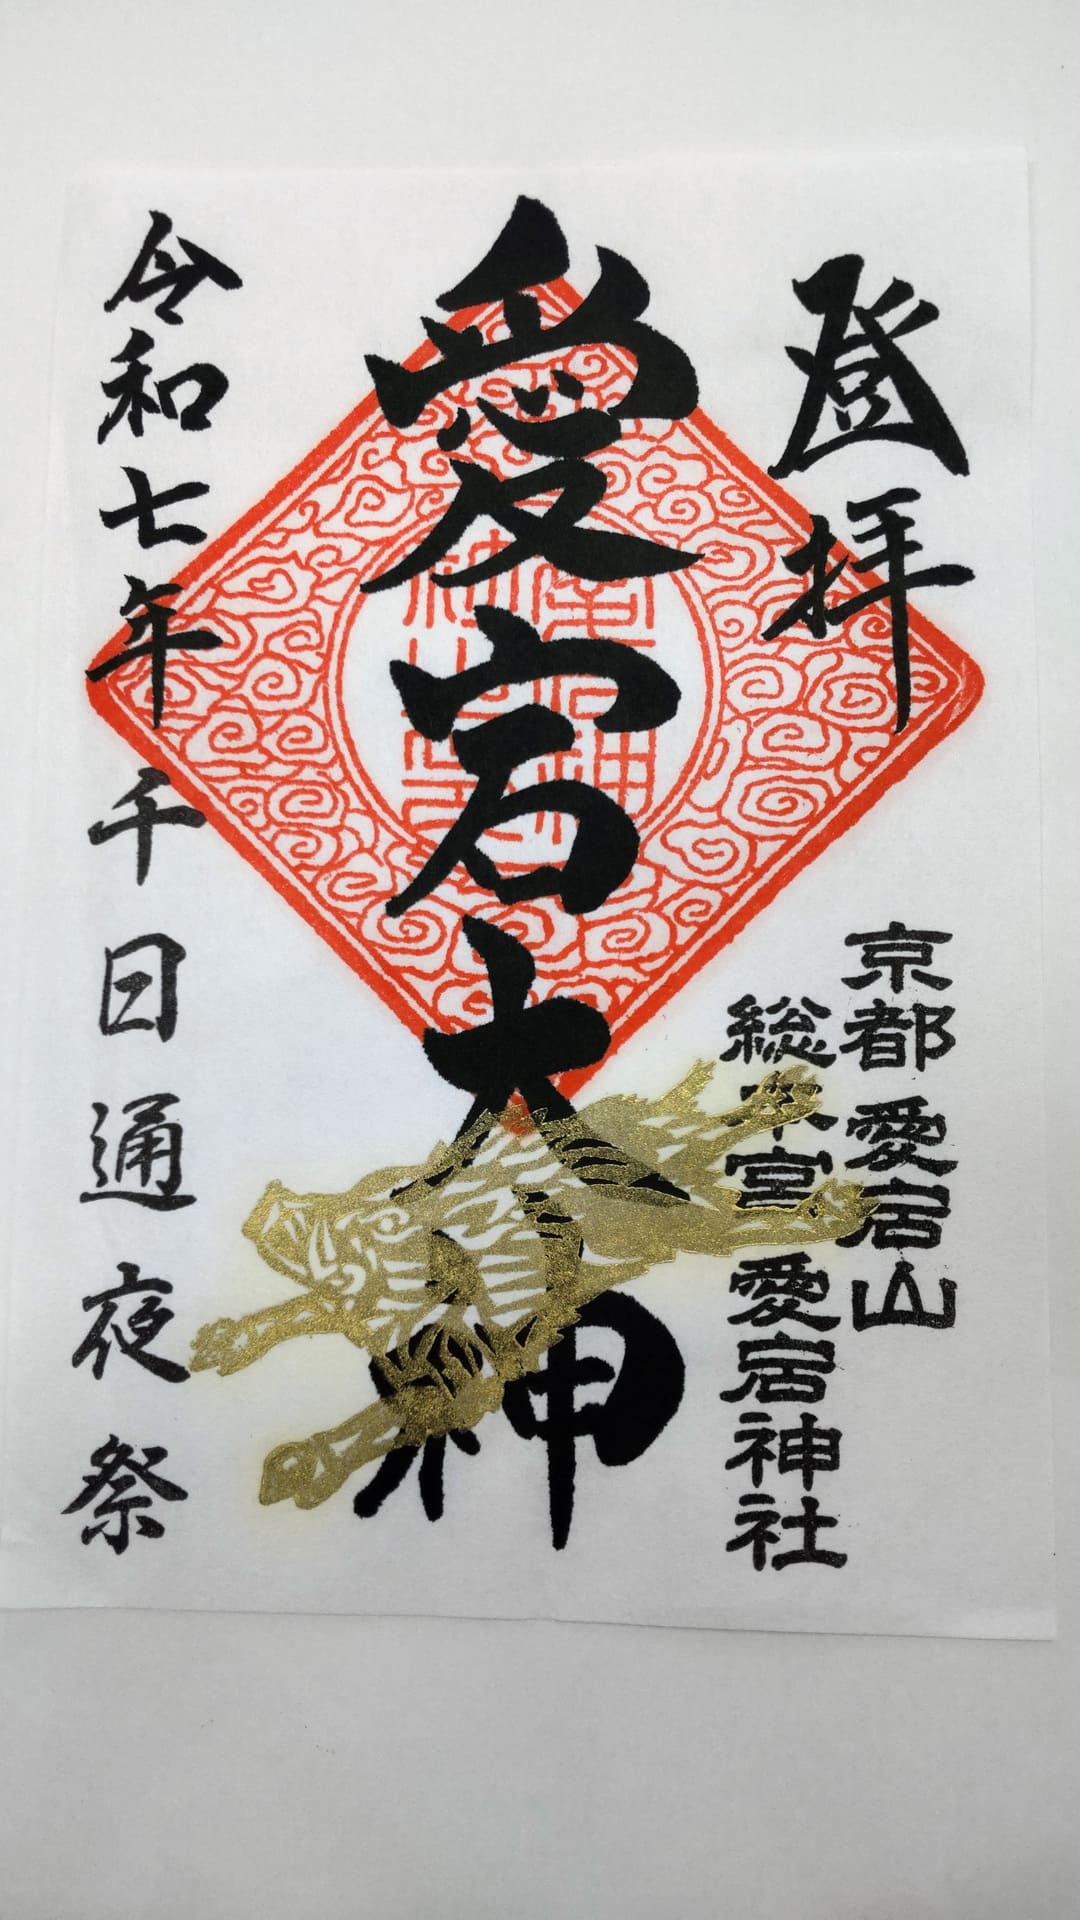 登拝
京都 愛宕山
総本宮 愛宕神社
愛宕大神
令和七年 千日通夜祭